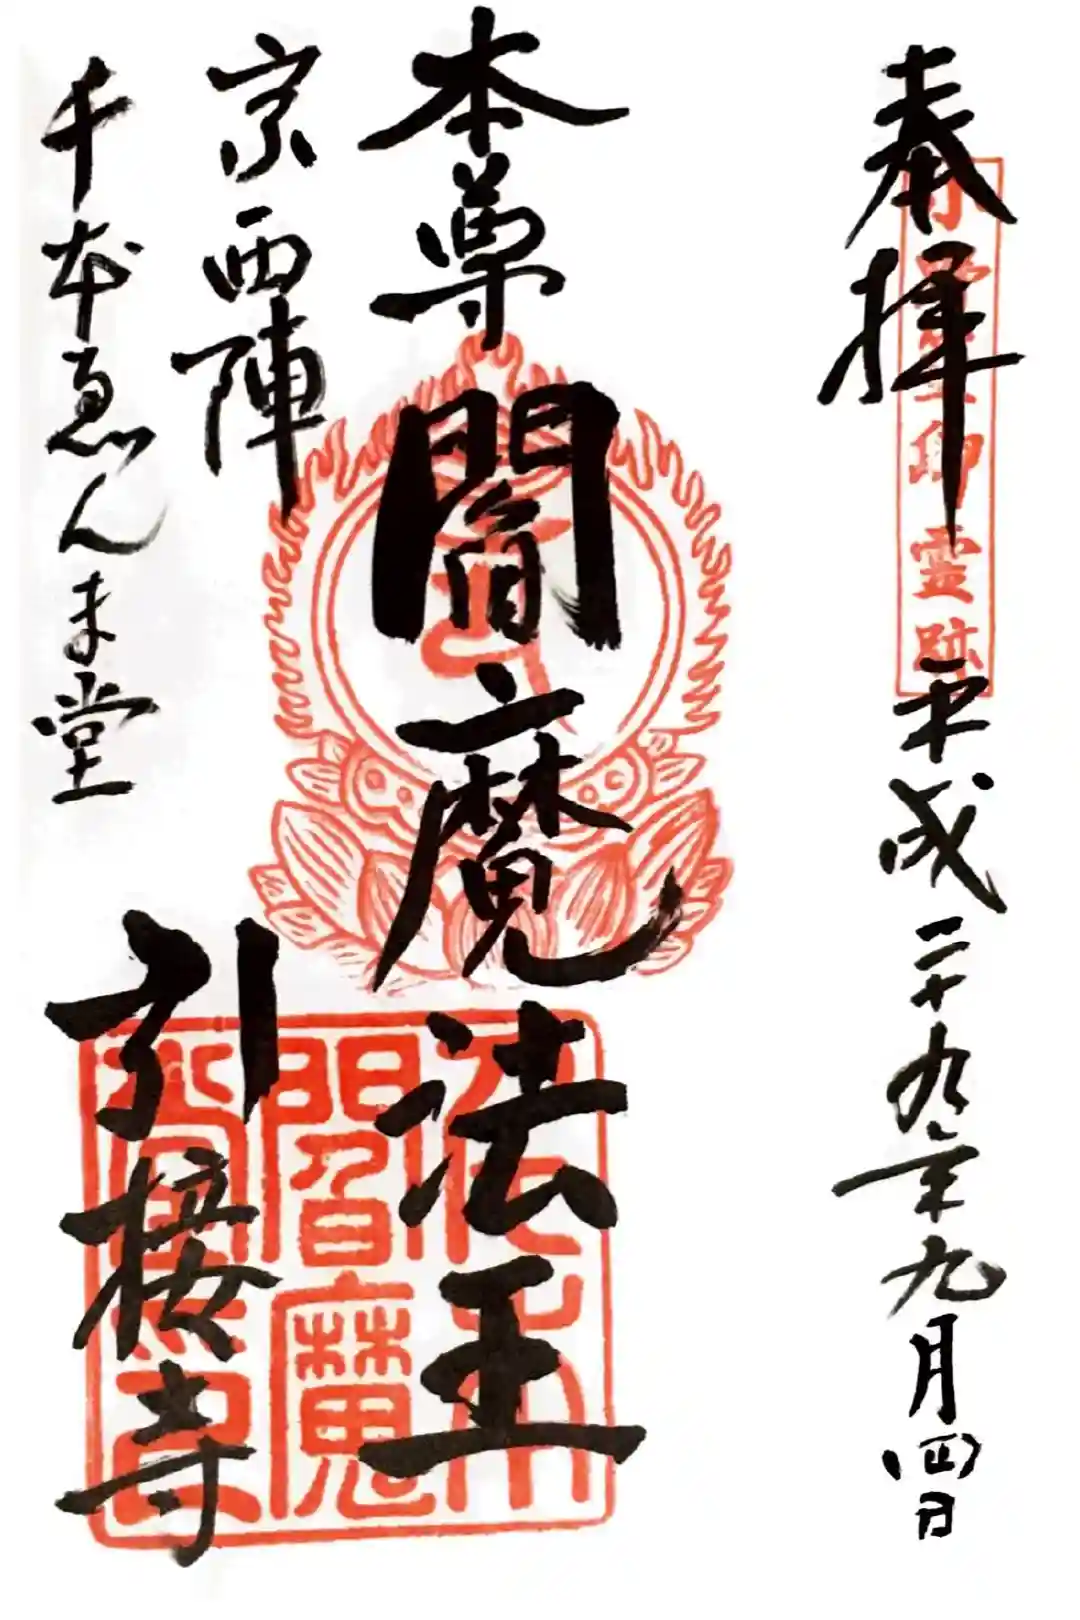 奉拝
小野篁卿霊跡
平成二十九年九月四日
本尊
閻魔法王
京西陣
千本ゑんま堂
引接寺
閻魔